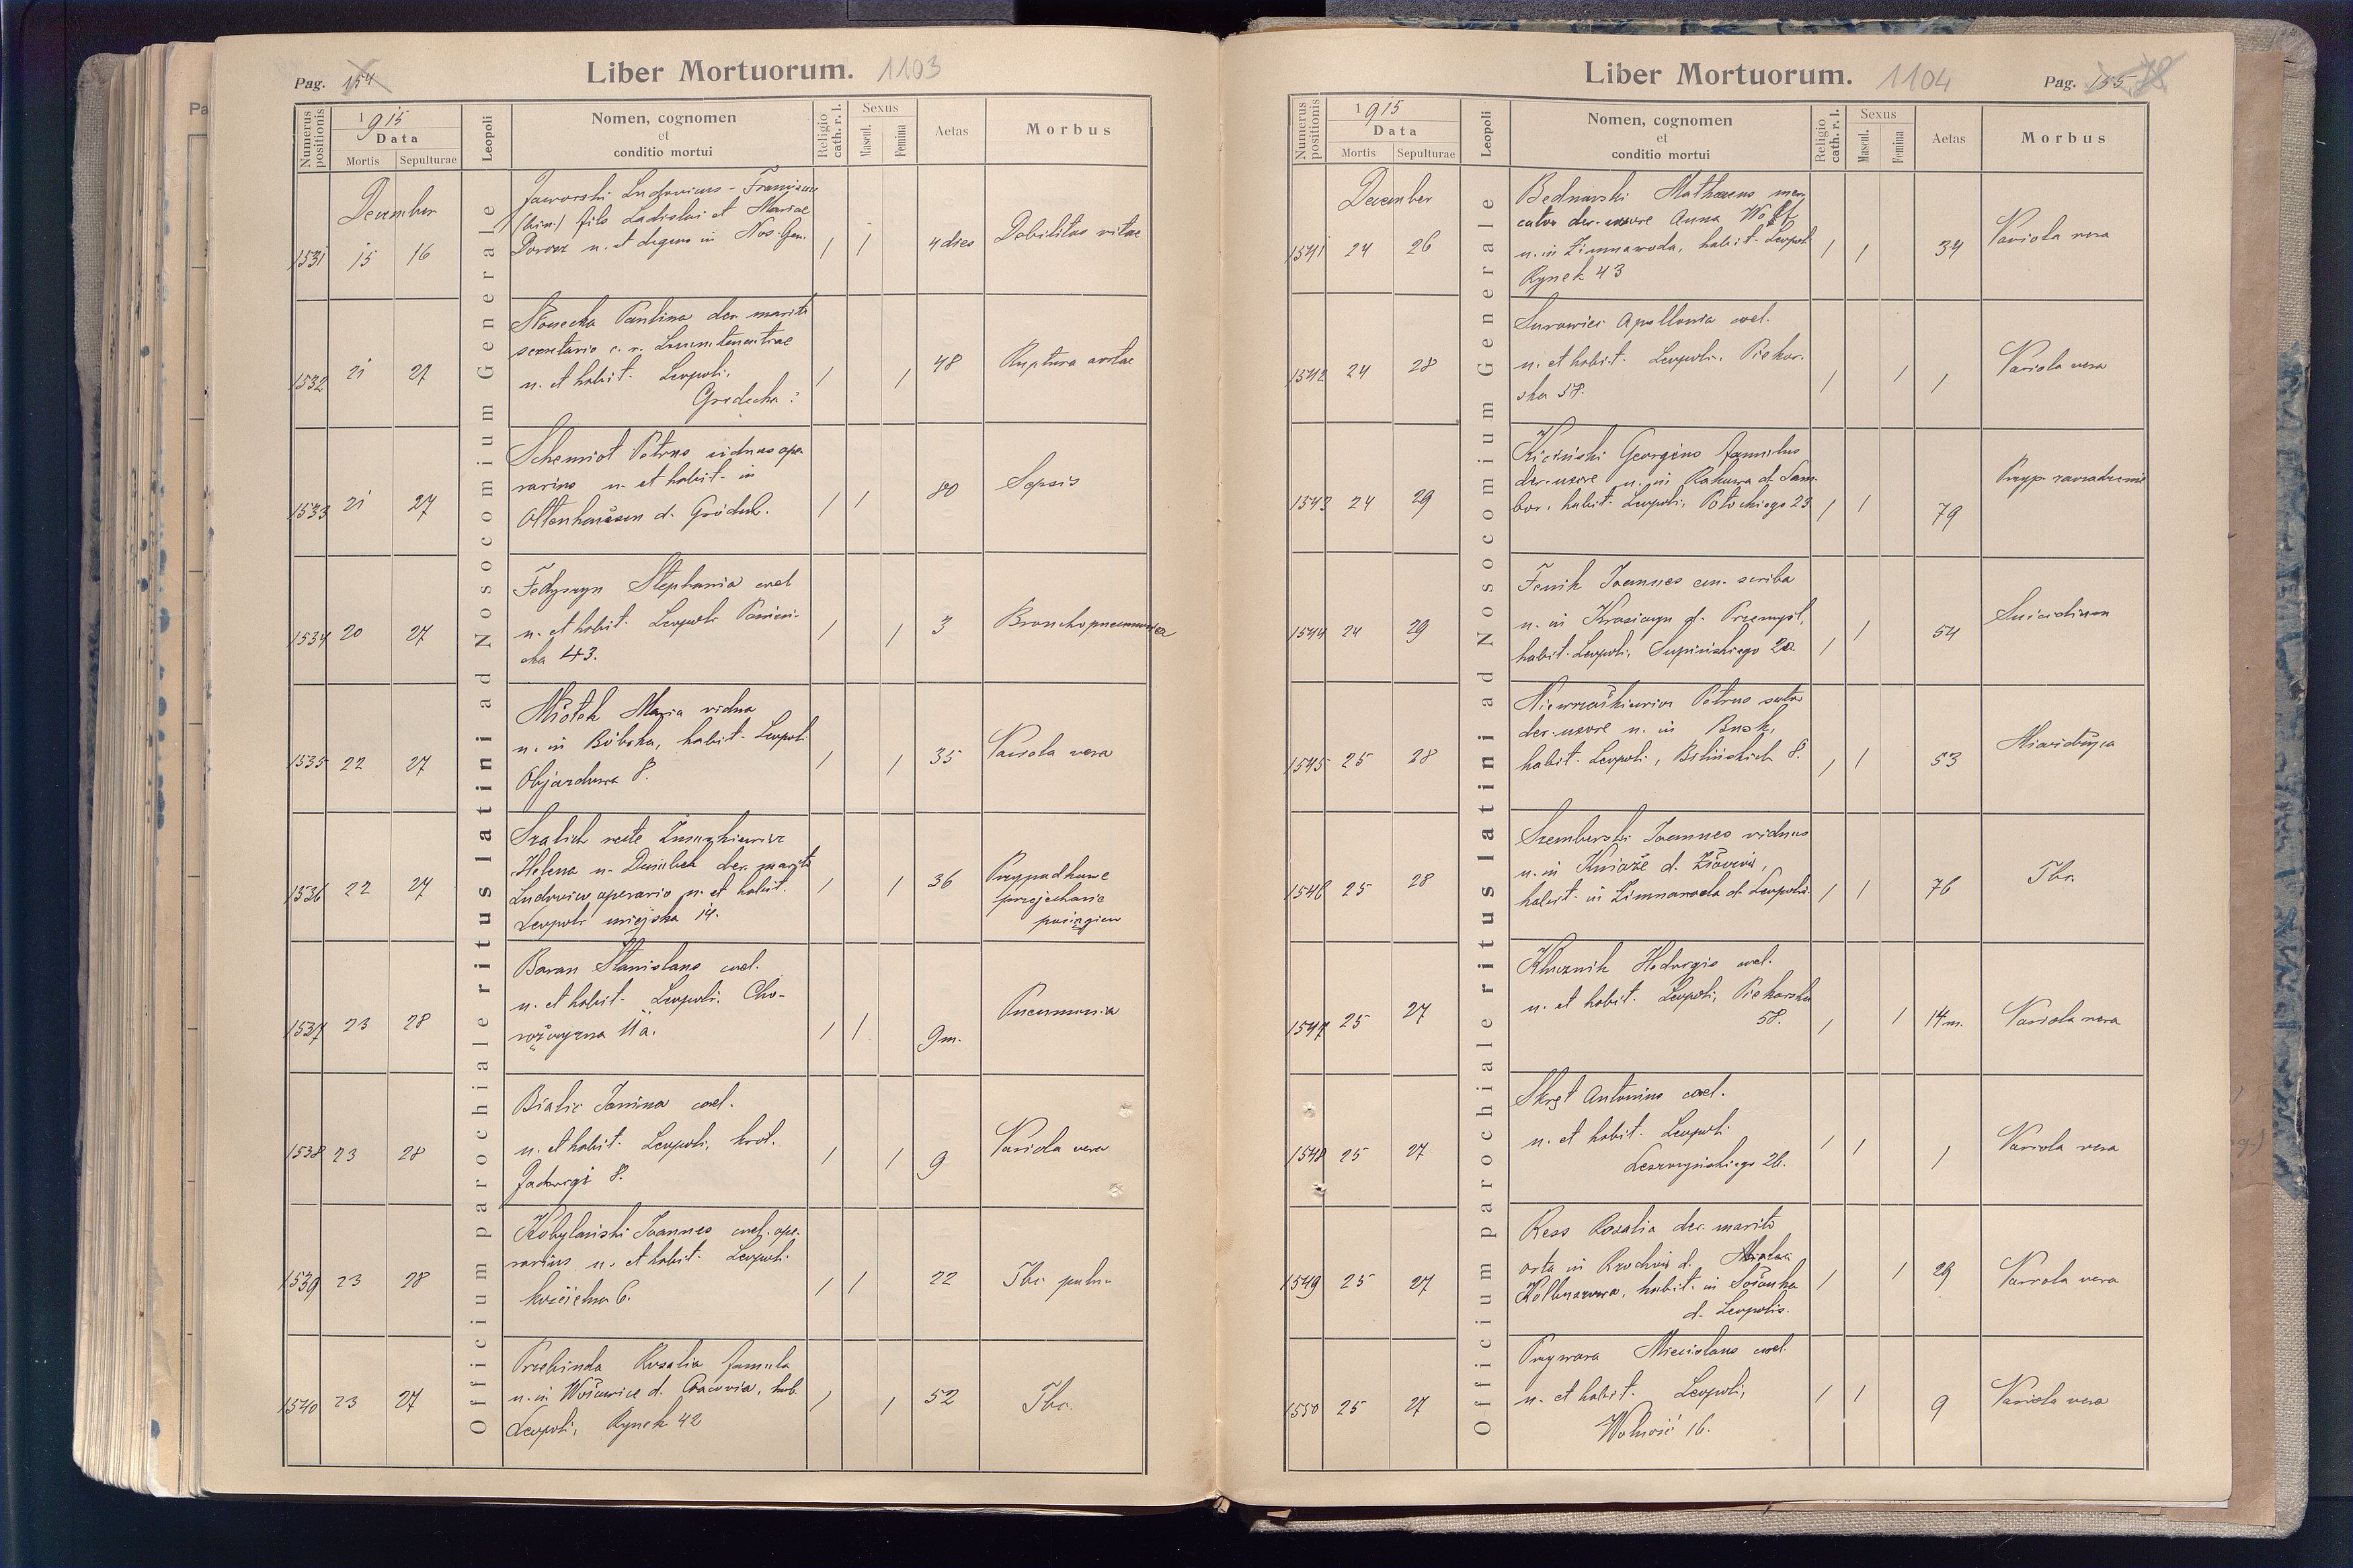 Pag. 154
Liber Mortuorum. 1103
Numerus positionis
1915
Data
Mortis
Sepulturae
Leopoli
Nomen, cognomen
et
conditio mortui
Religio cath. r. l.
Sexus
Mascul.
Femina
Aetas
Morbus
Officium parochiale ritus latini ad Nosocomium Generale
December
1531 15 16
Jaworski Ludovicus - Franciscus
(bin.) filo Ladislai et Mariae
n. et degens in Nos. Gen.
/ / 4 dies Debilitas vitae
1532 21 27
Paulina der. marito
secretario c. r.
n. et habit. Leopoli,
Grodecka ?
/ / 48 Ruptura aortae
1533 21 27
Petrus viduus ope
rarius n. et habit. in
Ottenhausen d. Gródek.
/ / 80 Sepsis
1534 20 27
Fedyszyn Stephania coel
n. et habit. Leopoli
ska 43.
/ / 3 Bronchopneumonia
1535 22 27
Młotek Maria vidua
n. in Bóbrka, habit. Leopol.
Objazdowa 8.
/ / 35 Variola vera
1536 22 27
Szalich recte
Helena n. der. marito
Ludovico operario n. et habit.
Leopoli miejska 14.
/ / 36 Przypadkowe
przejechanie
pociągiem
1537 23 28
Baran Stanislaus coel.
n. et habit. Leopoli. Cho-
rążczyzna 11a.
/ / 9 m. Pneumonia
1538 23 28
Bialic Janina coel.
n. et habit. Leopoli, król.
Jadwigi 8.
/ / 9 Variola vera
1539 23 28
Kobylański Joannes coel. ope-
rarius n. et habit. Leopoli.
kościelna 6.
/ / 22 Tbc. pulm.
1540 23 27
Przebinda Rosalia famula
n. in d. Cracovia, hab.
Leopoli, Rynek 42
/ / 52 Tbc.
Liber Mortuorum. 1104
Pag. 155 78
Numerus positionis
1915
Data
Mortis
Sepulturae
Leopoli
Nomen, cognomen
et
conditio mortui
Religio cath. r. l.
Sexus
Mascul.
Femina
Aetas
Morbus
Officium parochiale ritus latini ad Nosocomium Generale
December
1541 24 26
Bednarski Mathaeus mer
cator der. uxore Anna Wolff,
n. in Zimnawoda, habit. Leopol
Rynek 43
/ / 34 Variola vera
1542 24 28
Surowiec Apollonia coel.
n. et habit. Leopoli. Piekar-
ska 58.
/ / 1 Variola vera
1543 24 29
Kiciński Georgius famulus
der. uxore n. in Rakowa d. Sam-
bor, habit. Leopoli, Potockiego 23
/ / 79
1544 24 29
Fenik Joannes em. scriba
n. in Krasiczyn d. Przemyśl,
habit. Leopoli, Supińskiego 20.
/ / 54 Suicidium
1545 25 28
Petrus sutor
der. uxore n. in Busk,
habit. Leopoli, Bilińskich 8.
/ / 53 Miażdżyca
1546 25 28
Szemburski Joannes viduus
n. in Kniaże d. Złoczów,
habit. in Zimnawoda d. Leopolis.
/ / 76 Tbc.
1547 25 27
Klucznik Hedvigis coel.
n. et habit. Leopoli, Piekarska
58.
/ / 14 m. Variola vera
1548 25 27
Skręt Antonius coel.
n. et habit. Leopoli.
Leszczyńskiego 26.
/ / 1 Variola vera
1549 25 27
Ress Rosalia der. marito
orta in d.
Kolbuszowa, habit. in
d. Leopolis.
/ / 29 Variola vera
1550 25 27
Przywara Miecislaus coel.
n. et habit. Leopoli,
Wolność 16.
/ / 9 Variola vera